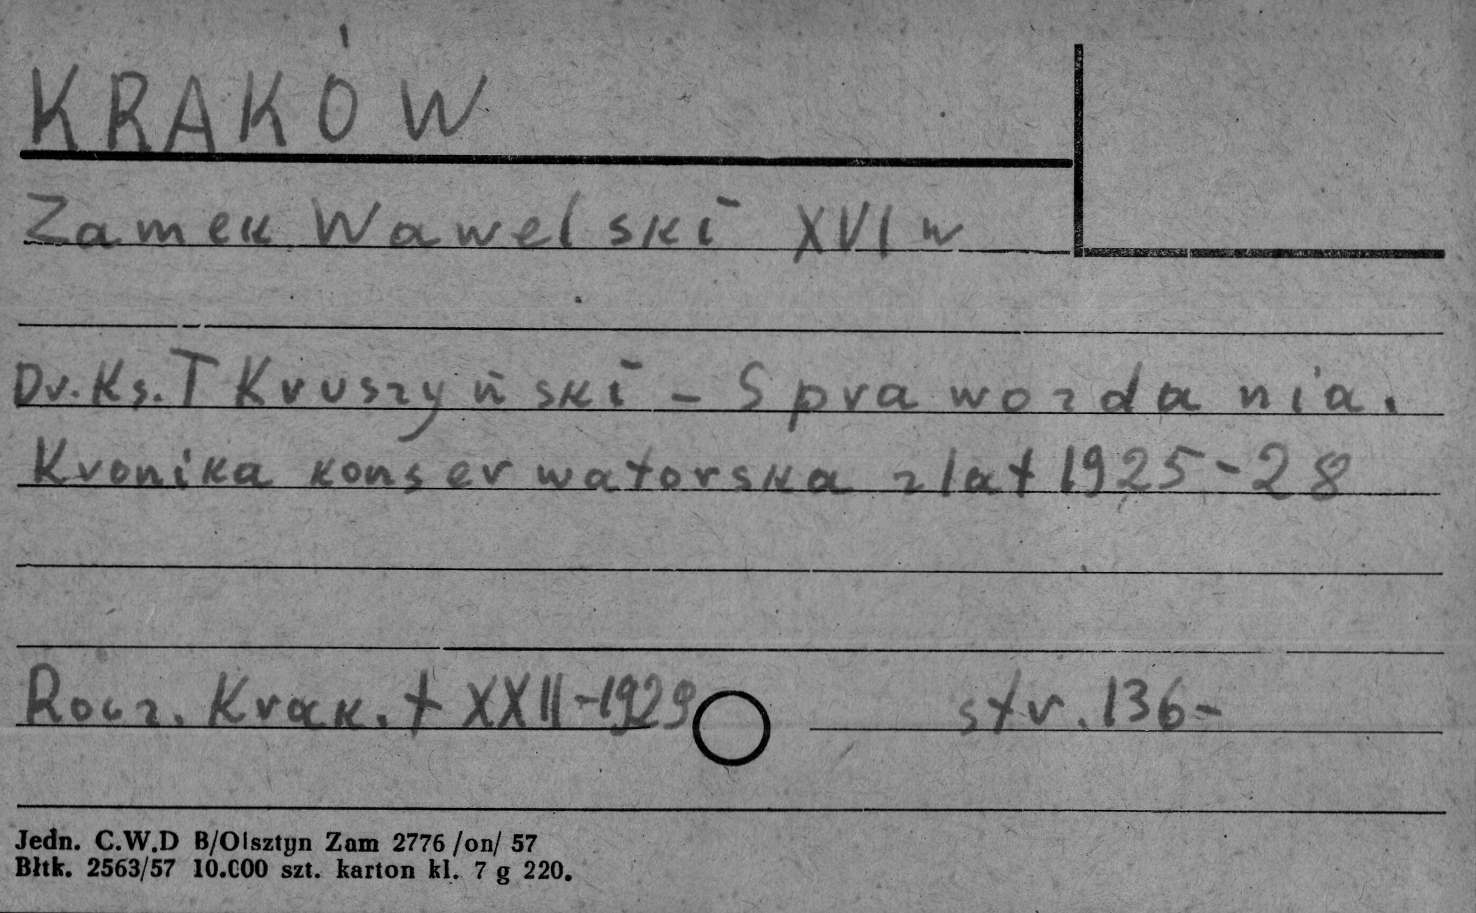 KRAKÓW
Zamek Wawelski XVI w
Dr. Ks. T Kruszyński - Sprawozdania.
Kronika konserwatorska z lat 1925-28
Rocz. Krak. t XXII-1929 str. 136-
Jedn. C.W.D B/Olsztyn Zam 2776 /on/ 57
Błtk. 2563/57 10.000 szt. karton kl. 7 g 220.